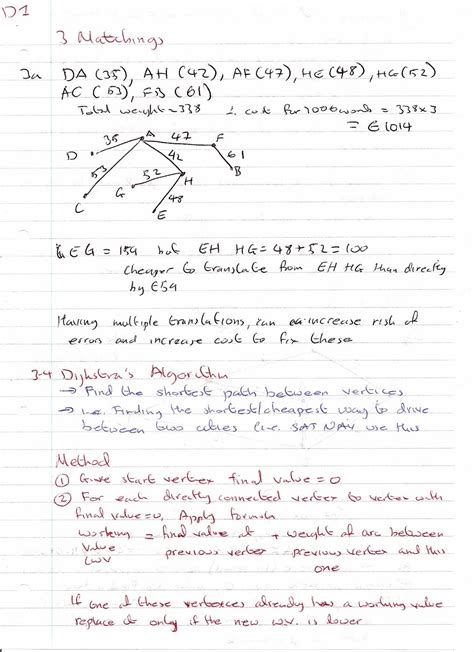 D1
3 Matchings
3a DA (35), AH (42), AF (47), HE (48), HG (52)
AC (53), FB (61)
Total weight = 338 ∴ cost for 1000 words = 338 x 3
= € 1014
D 35 A 47 F
53 42 61
G 52 H B
C 48
E
EG = 159 but EH HG = 48 + 52 = 100
cheaper to translate from EH HG than directly
by £59
Having multiple translations, can increase risk of
errors and increase cost to fix these
3.4 Dijkstra's Algorithm
→ Find the shortest path between vertices
→ i.e. Finding the shortest/cheapest way to drive
between two cities i.e. SAT NAV use this
Method
① Give start vertex final value = 0
② For each directly connected vertex to vertex with
final value = 0, Apply formula
working = final value at + weight of arc between
value previous vertex previous vertex and this
(wv) one
If one of these vertexces already has a working value
replace it only if the new w.v. is lower